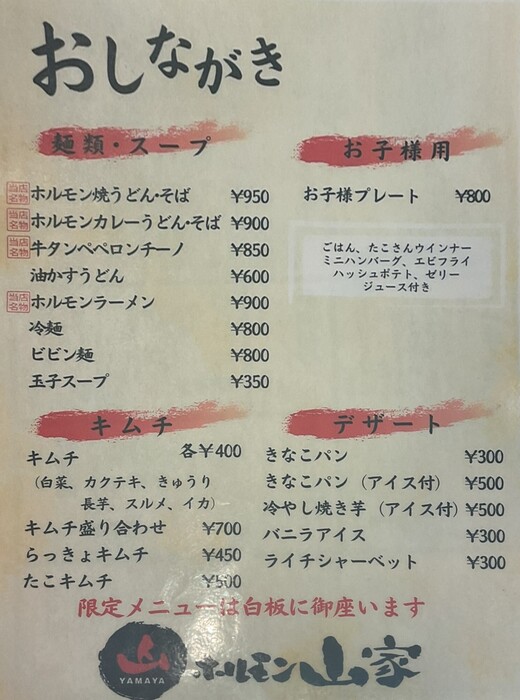 おしながき
麺類・スープ
当店名物 ホルモン焼うどん・そば ¥950
当店名物 ホルモンカレーうどん・そば ¥900
当店名物 牛タンペペロンチーノ ¥850
油かすうどん ¥600
当店名物 ホルモンラーメン ¥900
冷麺 ¥800
ビビン麺 ¥800
玉子スープ ¥350
お子様用
お子様プレート ¥800
ごはん、たこさんウインナー
ミニハンバーグ、エビフライ
ハッシュポテト、ゼリー
ジュース付き
キムチ
キムチ 各¥400
(白菜、カクテキ、きゅうり
長芋、スルメ、イカ)
キムチ盛り合わせ ¥700
らっきょキムチ ¥450
たこキムチ ¥500
デザート
きなこパン ¥300
きなこパン (アイス付) ¥500
冷やし焼き芋 (アイス付) ¥500
バニラアイス ¥300
ライチシャーベット ¥300
限定メニューは白板に御座います
山
YAMAYA
ホルモン山家